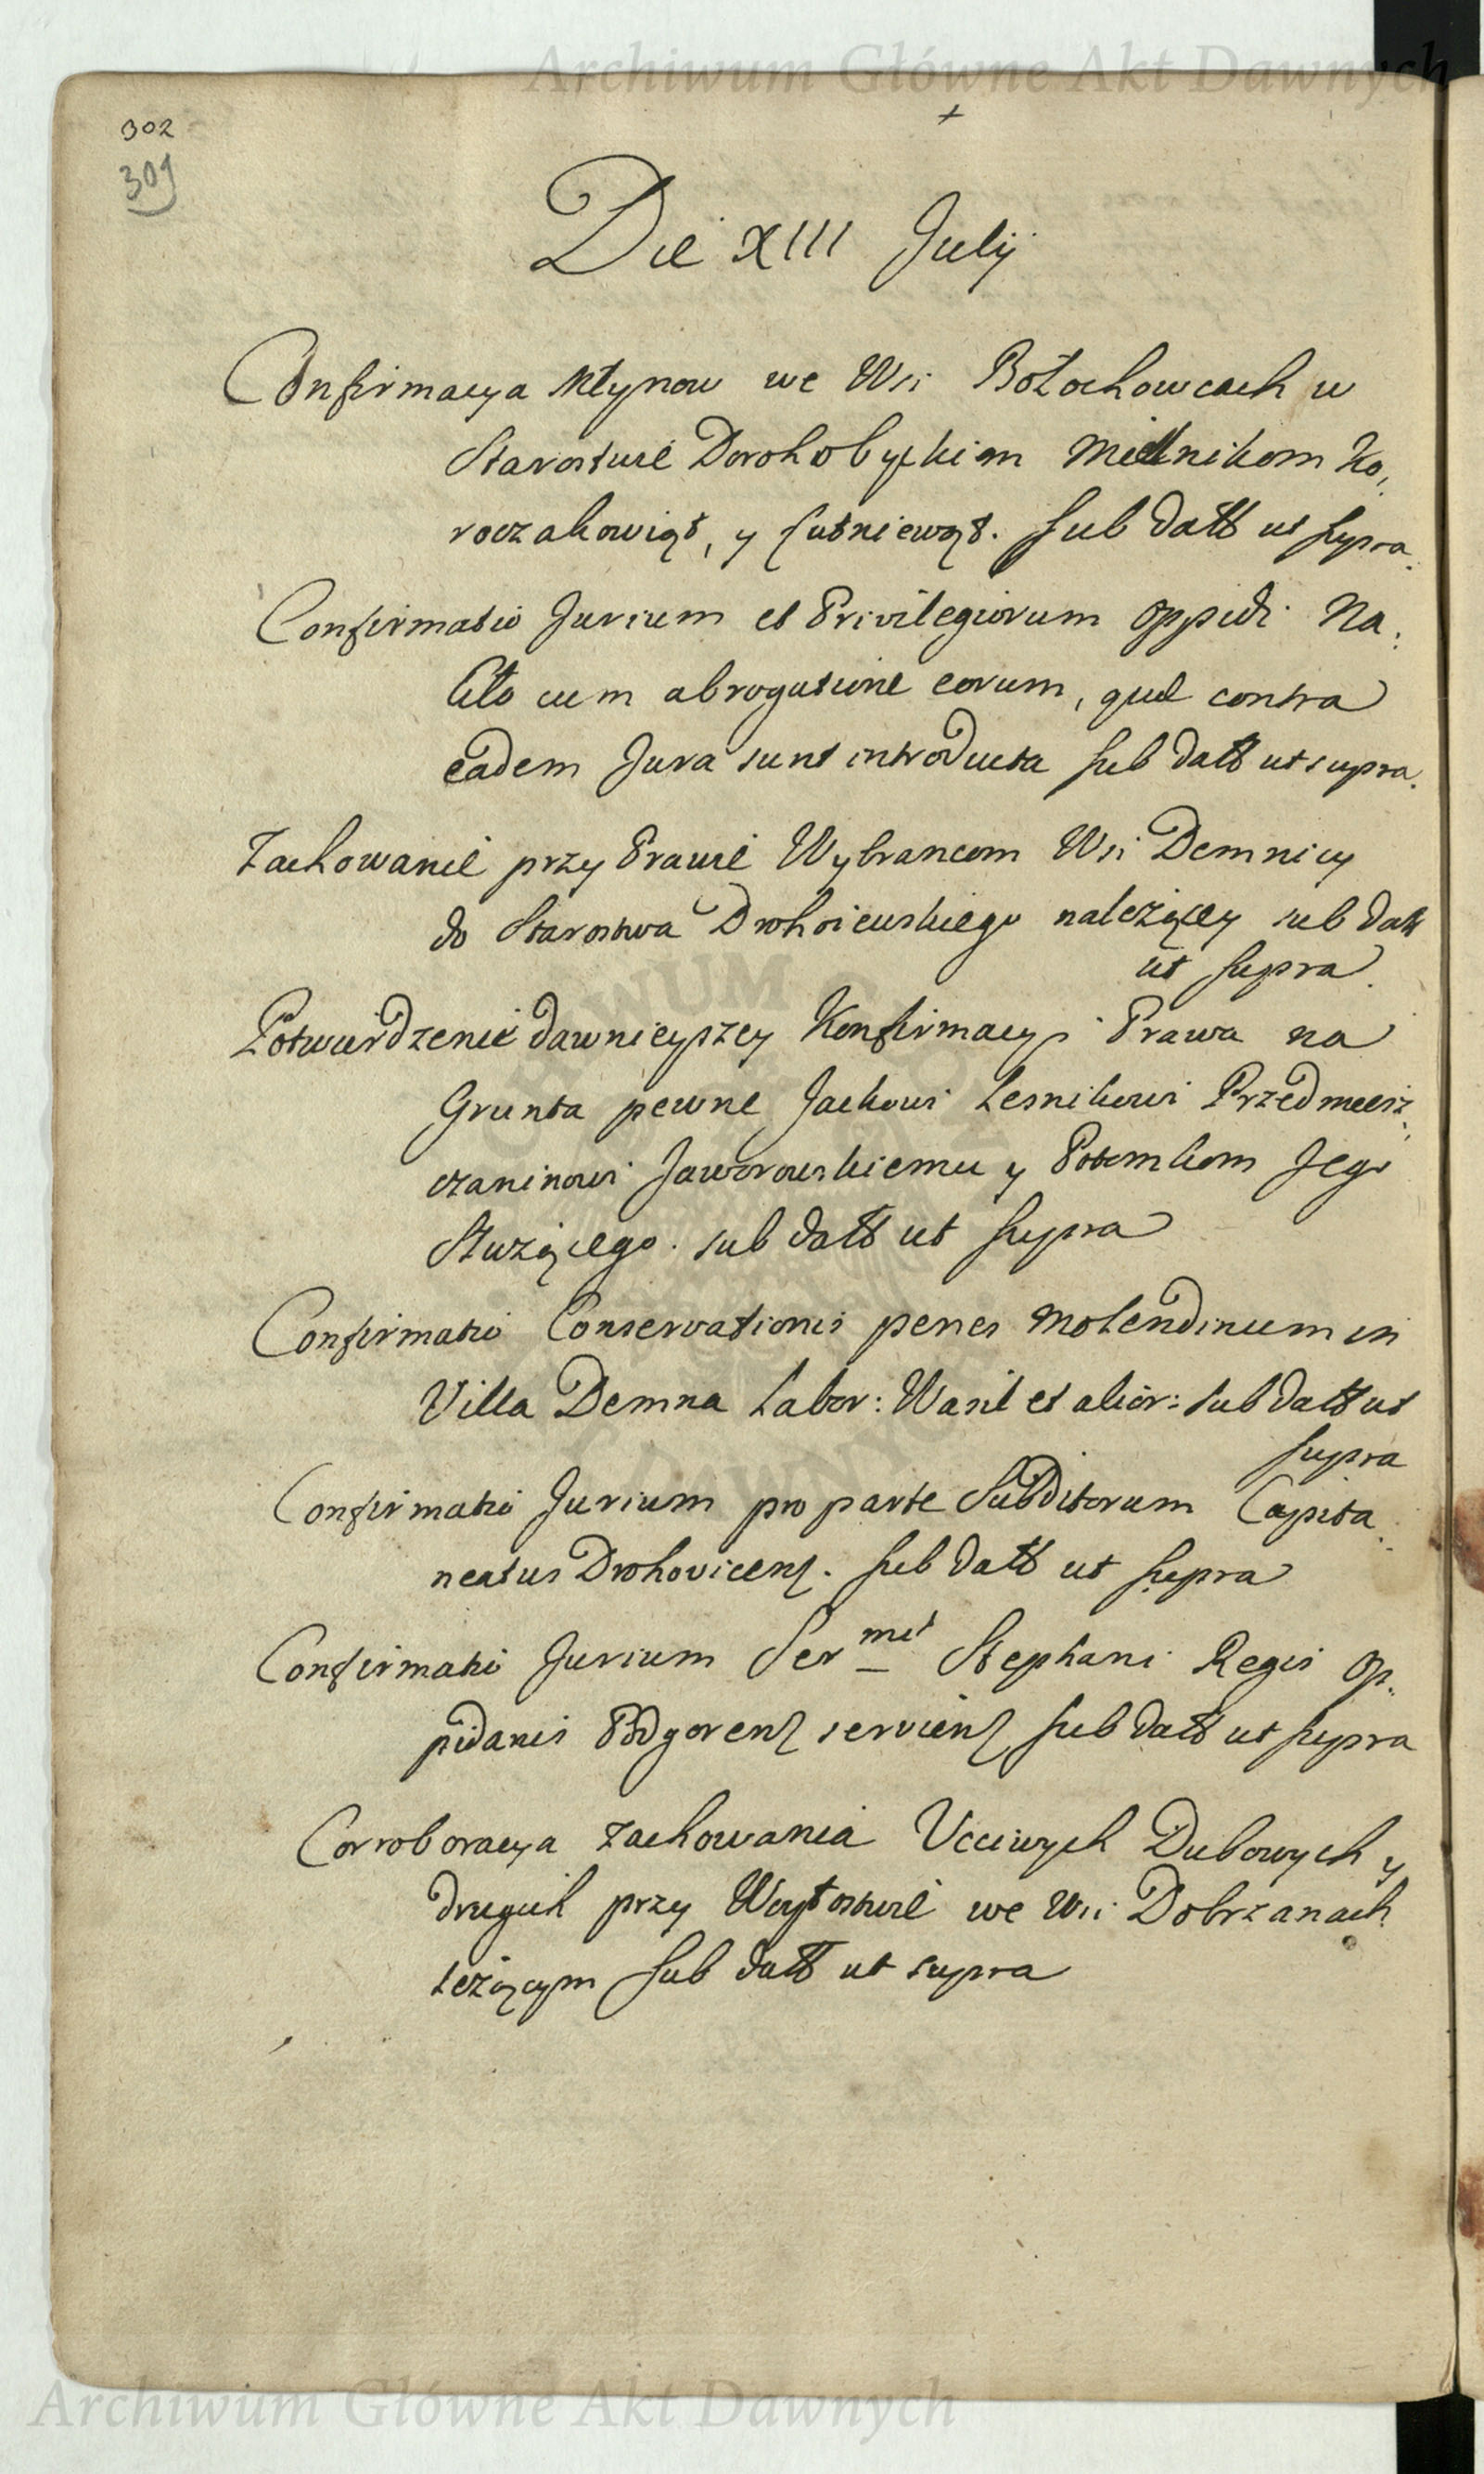 Archiwum Główne Akt Dawnych
302
309
Die XIII Julij
Confirmacya Młynow we Wsi Bołochowcach w
Starostwie Dorohobyckim Mielnikom Ko,
roczakowiąt, y sub datt ut supra.
Confirmatio Jurium et Privilegiorum Oppidi Na,
kło cum abrogatione eorum, quæ contra
eadem Jura sunt introducta sub datt ut supra.
Zachowanie przy Prawie Wybrancom Wsi Demnicy
do Starostwa Drohoiewskiego należącey sub datt
ut supra.
Potwierdzenie dawnieyszey Konfirmacyi Prawa na
Grunta pewne Jackowi Lesnikowi Przedmiesz,
czaninowi Jaworowskiemu y Potomkom Jego
Służącego. sub datt ut supra
Confirmatio Conservationis penes Molendinum in
Villa Demna Labor: Wasil et alior: sub datt ut
supra
Confirmatio Jurium pro parte Subditorum Capita,
neatus Drohovicens. sub datt ut supra
Confirmatio Jurium Ser mi Stephani Regis Op,
pidanis Podgorens serviens sub datt ut supra
Corroboracya zachowania Ucciwych Dubowych y
drugich przy Woytostwie we Wsi Dobrzanach
leżącym sub datt ut supra
Archiwum Główne Akt Dawnych